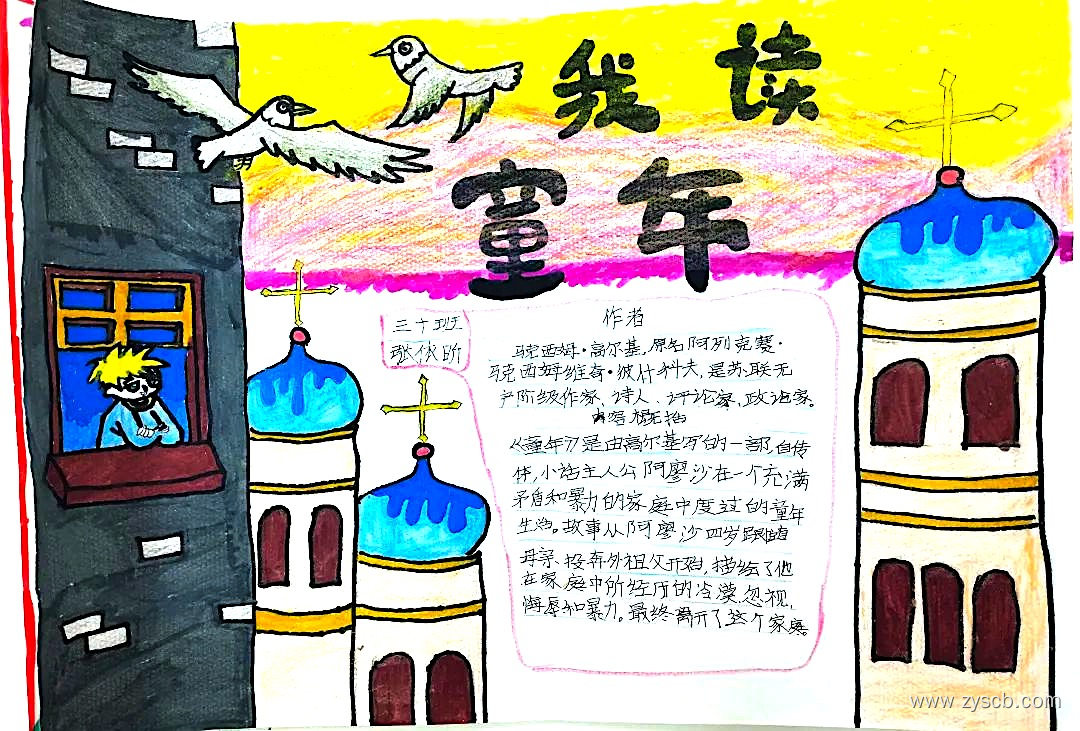 我读
童年
三十班
张依阶
作者
马克西姆·高尔基,原名阿列克赛·
马克西姆维奇·彼什科夫,是苏联无
产阶级作家、诗人、评论家、政论家。
内容概括
《童年》是由高尔基写的一部自传
体,小说主人公阿廖沙在一个充满
矛盾和暴力的家庭中度过的童年
生活。故事从阿廖沙四岁跟随
母亲、投奔外祖父开始,描绘了他
在家庭中所经历的冷漠、忽视、
侮辱和暴力。最终离开了这个家庭。
www.zyscb.com